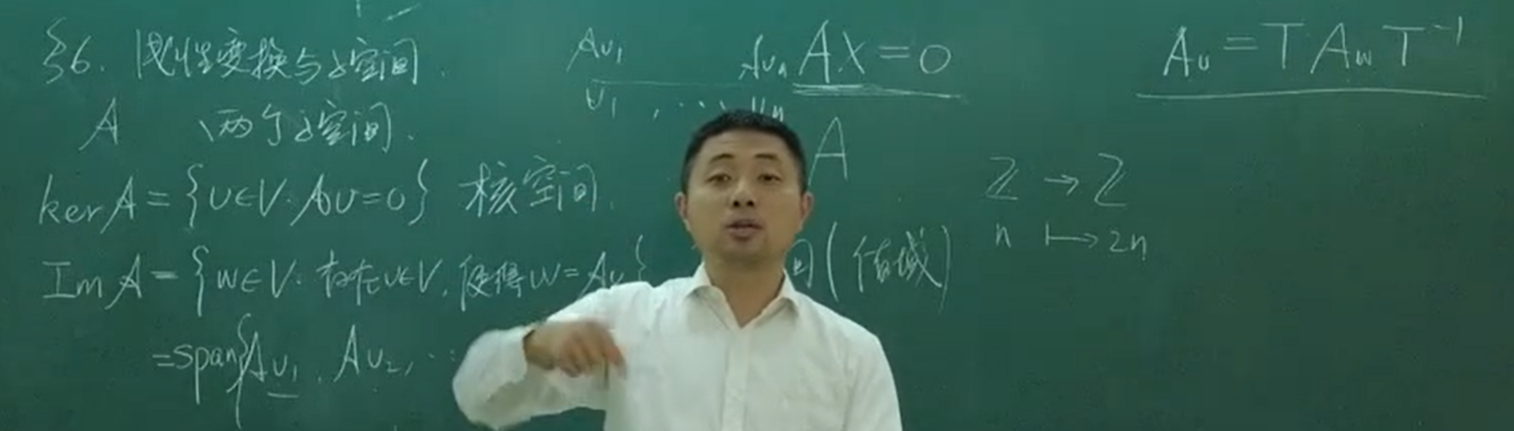 §6. 线性变换与子空间.
A 两个子空间.
ker A = {v∈V: Av=0} 核空间.
Im A = {w∈V: 存在v∈V, 使得w=Av} 间(值域)
=span{Av₁, Av₂, ...
Av₁ Avₙ
v₁, ... vₙ
AX=0
A
Z → Z
n ↦ 2n
Aᵥ = T A_w T⁻¹